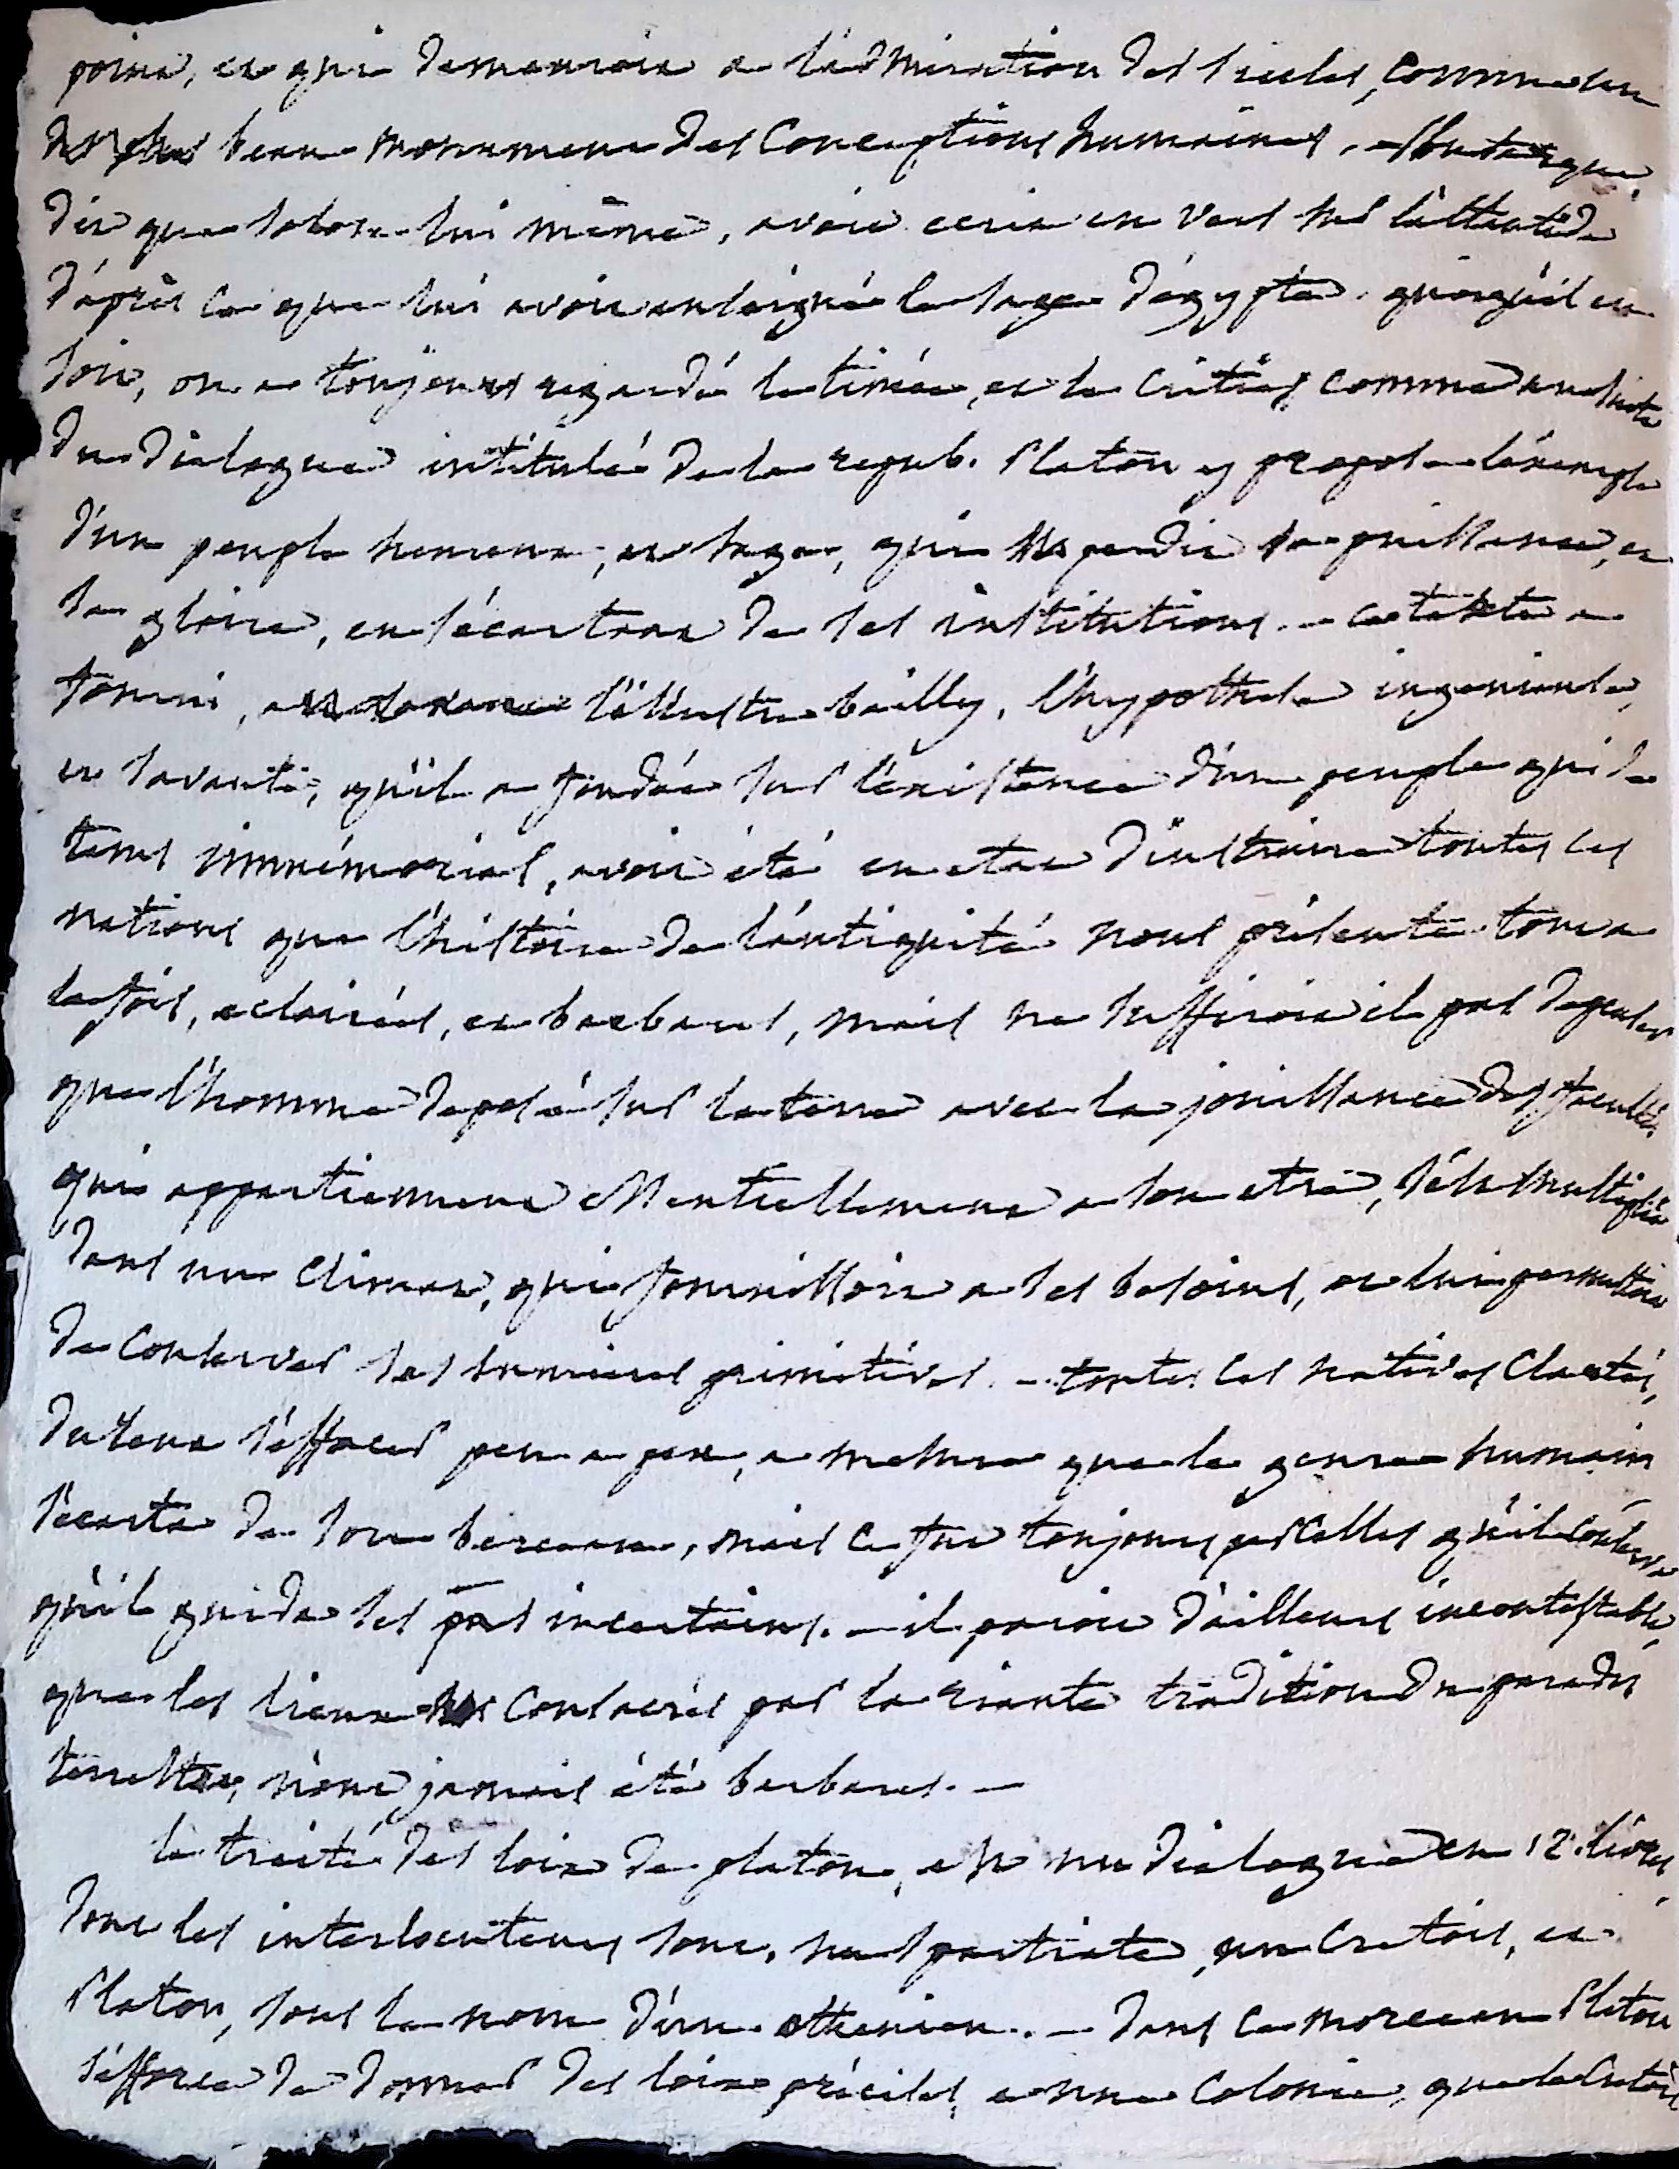 poina, et qui demeurera a l'admiration des siecles, comme un
des plus beau monument des Conceptions humaines. - Plutarque
dit que solon lui même, avoit ecrit en vers sur l'atlantide
d'après ce que lui avoit enseigné le sage d'égypte. quoiqu'il en
soit, on a toujours regardé le timée, et le Critias comme une suite
du dialogue intitulé de la repub. Platon y propose l'éxemple
d'un peuple heureux, et sage, qui perdit sa puissance, et
sa gloire, en s'écartant de ses institutions. - ce texte a
fourni, l'illustre bailly, l'hypothese ingenieuse,
et savante, qu'il a fondée sur l'existence d'un peuple qui de
tems immémorial, avoit été en etat d'instruire toutes les
nations que l'histoire de l'antiquité nous présente tout a
la fois, eclairées, et barbares, mais ne suffiroit il pas de penser
que l'homme déposé sur la terre avec la jouissance des facultés
qui appartiennent essentiellement a son etre, s'est multiplié
dans un climat, qui fournissoit a ses besoins, et lui permettoit
de Conserver ses lumieres primitives. - toutes les natives Clartés,
durent s'effacer peu a peu, a mesure que le genre humain
s'ecarta de son berceau, mais ce fut toujours par celles qu'il conserva
qu'il guida ses pas incertains. - il paroit d'ailleurs incontestable,
que les lieux Consacrés par la riante tradition du paradis
terrestre, n'ont jamais été barbares. -
le traité des loix de platon, est un dialogue en 12. livres
dont les interlocuteurs sont, un spartiate, un Cretois, et
Platon, sous le nom d'un athenien. - dans ce morceau Platon
s'efforce de donner des loix précises, a une Colonie, que le Cretois